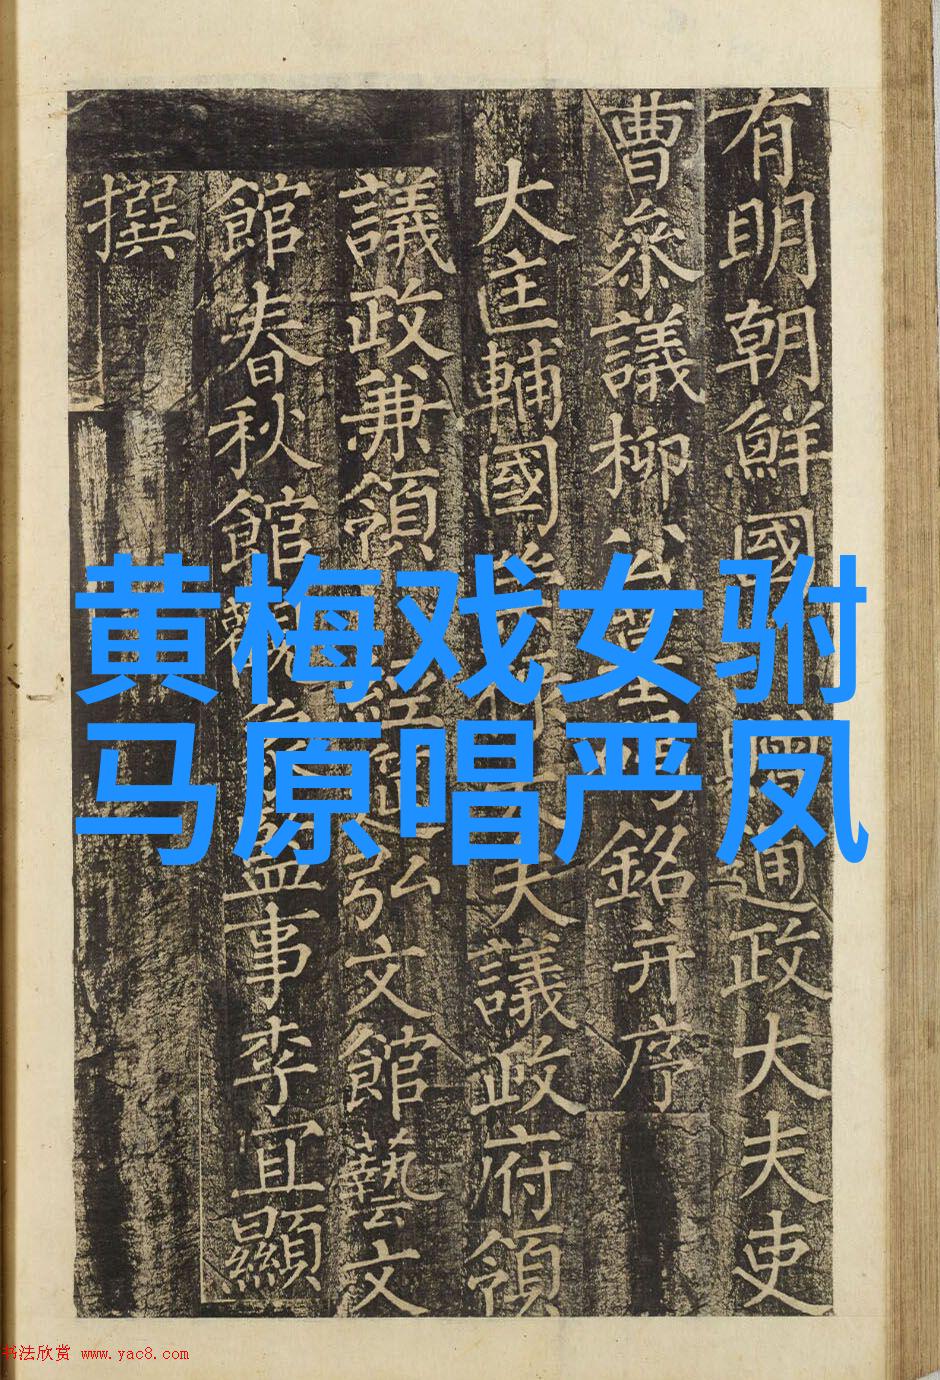 有明朝鮮國贈通政大夫吏
曹叅議柳公銘并序
大匡輔國崇祿大夫議政府領
議政兼領經筵弘文館藝文
館春秋館觀象監事李宜顯
撰
黄梅戏女驸
马原唱严凤
书法欣赏 www.yac8.com